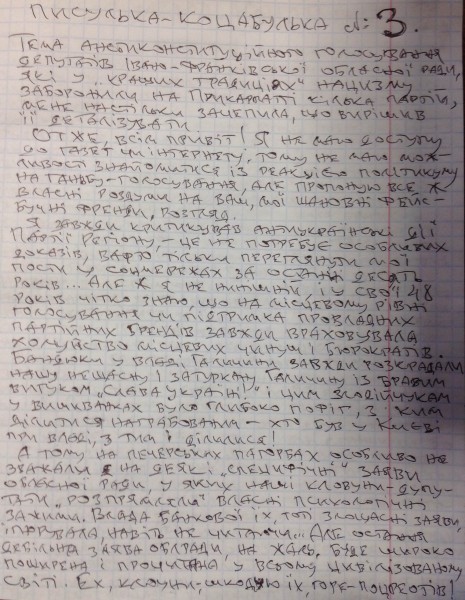 ПИСУЛЬКА-КОЦАБУЛЬКА №: 3.
ТЕМА АНТИКОНСТИТУЦІЙНОГО ГОЛОСУВАННЯ
ДЕПУТАТІВ ІВАНО-ФРАНКІВСЬКОЇ ОБЛАСНОЇ РАДИ,
ЯКІ У "КРАЩИХ ТРАДИЦІЯХ" НАЦИЗМУ
ЗАБОРОНИЛИ НА ПРИКАРПАТТІ КІЛЬКА ПАРТІЙ,
МЕНЕ НАСТІЛЬКИ ЗАЧЕПИЛА, ЩО ВИРІШИВ
ЇЇ ДЕТАЛІЗУВАТИ.
ОТЖЕ, ВСІМ ПРИВІТ! Я НЕ МАЮ ДОСТУПУ
ДО ГАЗЕТ ЧИ ІНТЕРНЕТУ, ТОМУ НЕ МАЮ МОЖ-
ЛИВОСТІ ЗНАЙОМИТИСЯ ІЗ РЕАКЦІЄЮ ПОЛІТИКУМУ
НА ГАНЬБУ-ГОЛОСУВАННЯ, АЛЕ ПРОПОНУЮ ВСЕ Ж
ВЛАСНІ РОЗДУМИ НА ВАШ, МОЇ ШАНОВНІ ФЕЙС-
БУЧНІ ФРЕНДИ, РОЗГЛЯД.
Я ЗАВЖДИ КРИТИКУВАВ АНТИУКРАЇНСЬКІ ДІЇ
ПАРТІЇ РЕГІОНУ, - ЦЕ НЕ ПОТРЕБУЄ ОСОБЛИВИХ
ДОКАЗІВ, ВАРТО ТІЛЬКИ ПЕРЕГЛЯНУТИ МОЇ
ПОСТИ У СОЦМЕРЕЖАХ ЗА ОСТАННІ ДЕСЯТЬ
РОКІВ... АЛЕ Ж Я НЕ НИНІШНІЙ, І У СВОЇ 48
РОКІВ ЧІТКО ЗНАЮ, ЩО НА МІСЦЕВОМУ РІВНІ
ГОЛОСУВАННЯ ЧИ ПІДТРИМКА ПРОВЛАДНИХ
ПАРТІЙНИХ ТРЕНДІВ ЗАВЖДИ ВРАХОВУВАЛА
ХОЛУЙСТВО МІСЦЕВИХ ЧИНУШ І БЮРОКРАТІВ.
БАНДЮКИ У ВЛАДІ ГАЛИЧИНУ ЗАВЖДИ РОЗКРАДАЛИ
НАШУ НЕЩАСНУ І ЗАТУРКАНУ ГАЛИЧИНУ ІЗ БРАВИМ
ВИГУКОМ "СЛАВА УКРАЇНІ!" І ЦИМ ЗЛОДІЙЧУКАМ
У ВИШИВАНКАХ БУЛО ГЛИБОКО ПОФІГ, З КИМ
ДІЛИТИСЯ НАГРАБОВАНИМ - ХТО БУВ У КИЄВІ
ПРИ ВЛАДІ, З ТИМ І ДІЛИЛИСЯ!
А ТОМУ НА ПЕЧЕРСЬКИХ ПАГОРБАХ ОСОБЛИВО НЕ
ЗВАЖАЛИ НА ДЕЯКІ "СПЕЦИФІЧНІ" ЗАЯВИ
ОБЛАСНОЇ РАДИ, У ЯКИХ НАШІ КЛОУНИ-ДУПУ-
ТАТИ "РОЗПРЯМЛЯЛИ" ВЛАСНІ ПСИХОЛОГІЧНІ
ЗАЖИМИ. ВЛАДА БАНКОВОЇ ЇХ, ТОТІ ЗЛОЩАСНІ ЗАЯВИ,
НАВІТЬ НЕ ЧИТАЮЧИ... АЛЕ ОСТАННЯ
ДЕБІЛЬНА ЗАЯВА ОБЛРАДИ, НА ЖАЛЬ, БУДЕ ШИРОКО
ПОШИРЕНА І ПРОЧИТАНА У ВСЬОМУ ЦИВІЛІЗОВАНОМУ
СВІТІ. ЕХ, КЛОУНИ-ШКОДУЮ ЇХ, ГОРЕ-ПОЦРЕОТІВ!